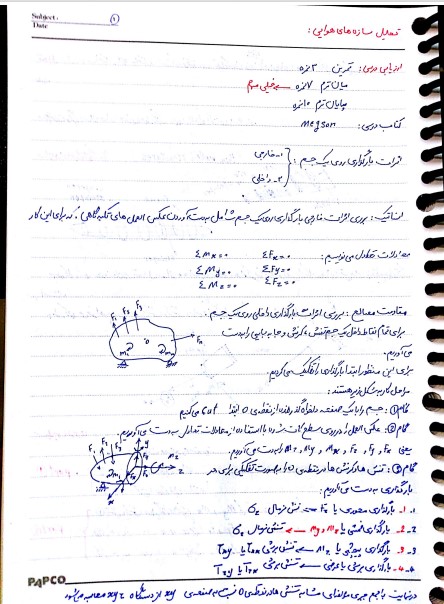 Subject:
Date
①
تحلیل سازه های هوایی:
ارزیابی درس: تمرین ۳ نمره
میان ترم ۷ نمره ← خیلی مهم
پایان ترم ۱۰ نمره
کتاب درسی: Megson
اثرات بارگذاری روی یک جسم:
۱- خارجی
۲- داخلی
استاتیک: بررسی اثرات خارجی بارگذاری روی یک جسم شامل بدست آوردن عکس العمل های تکیه گاهی؛ برای این کار
معادلات تعادل می نویسیم:
ΣFx=0 ΣMx=0
ΣFy=0 ΣMy=0
ΣFz=0 ΣMz=0
مقاومت مصالح: بررسی اثرات بارگذاری داخلی روی یک جسم.
برای تمام نقاط داخل یک جسم تنش، کرنش و جابه جایی را بدست
می آوریم.
برای این منظور ابتدا بارگذاری را تفکیک می کنیم.
مراحل کار به شکل زیر هستند:
گام ①: جسم را با یک صفحه دلخواه گذرنده از نقطه ی O ابتدا cut می کنیم
گام ②: عکس العمل را در روی سطح cut شده با استفاده از معادلات تعادل بدست می آوریم.
یعنی Fx, Fy, Fz, Mx, My, Mz را بدست می آوریم.
گام ③: تنش ها و کرنش ها در نقطه ی O را بصورت تفکیکی برای هر
بارگذاری بدست می آوریم:
۱- بارگذاری محوری یا Fz ← تنش نرمال σz
۲- بارگذاری خمشی یا Mx و My ← تنش نرمال σz
۳- بارگذاری پیچشی یا Mz ← تنش برشی τzx یا τzy
۴- بارگذاری برشی یا عرضی ← تنش برشی τzx یا τzy
در نهایت با جمع جبری مولفه های مشابه تنش ها در نقطه ی O
PAPCO
F1
F2
F3
Fn
O
M1
M2